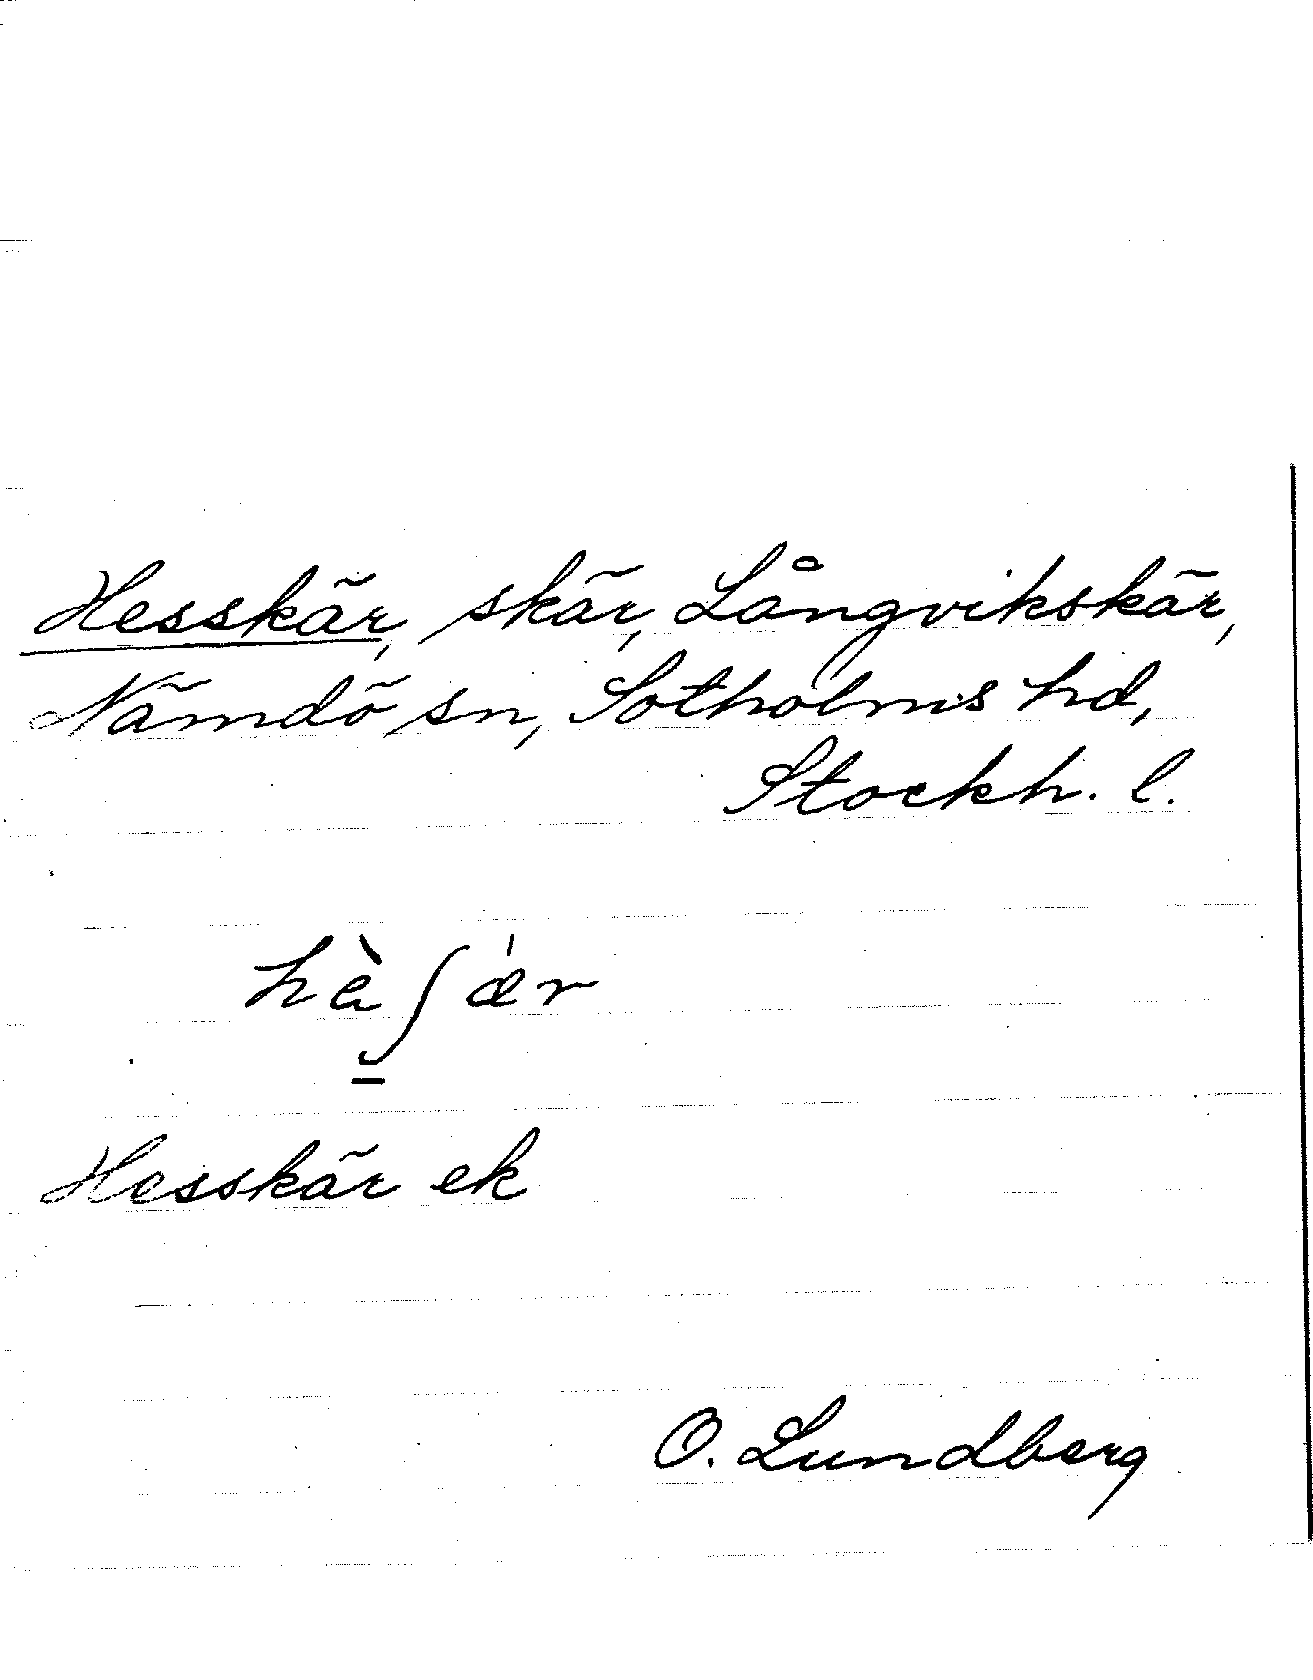 Hesskär, skär, Långvikskär,
Nämdö sn, Sotholms hd,
Stockh. l.
hὲʃæ̍r
Hesskär ek
O. Lundberg